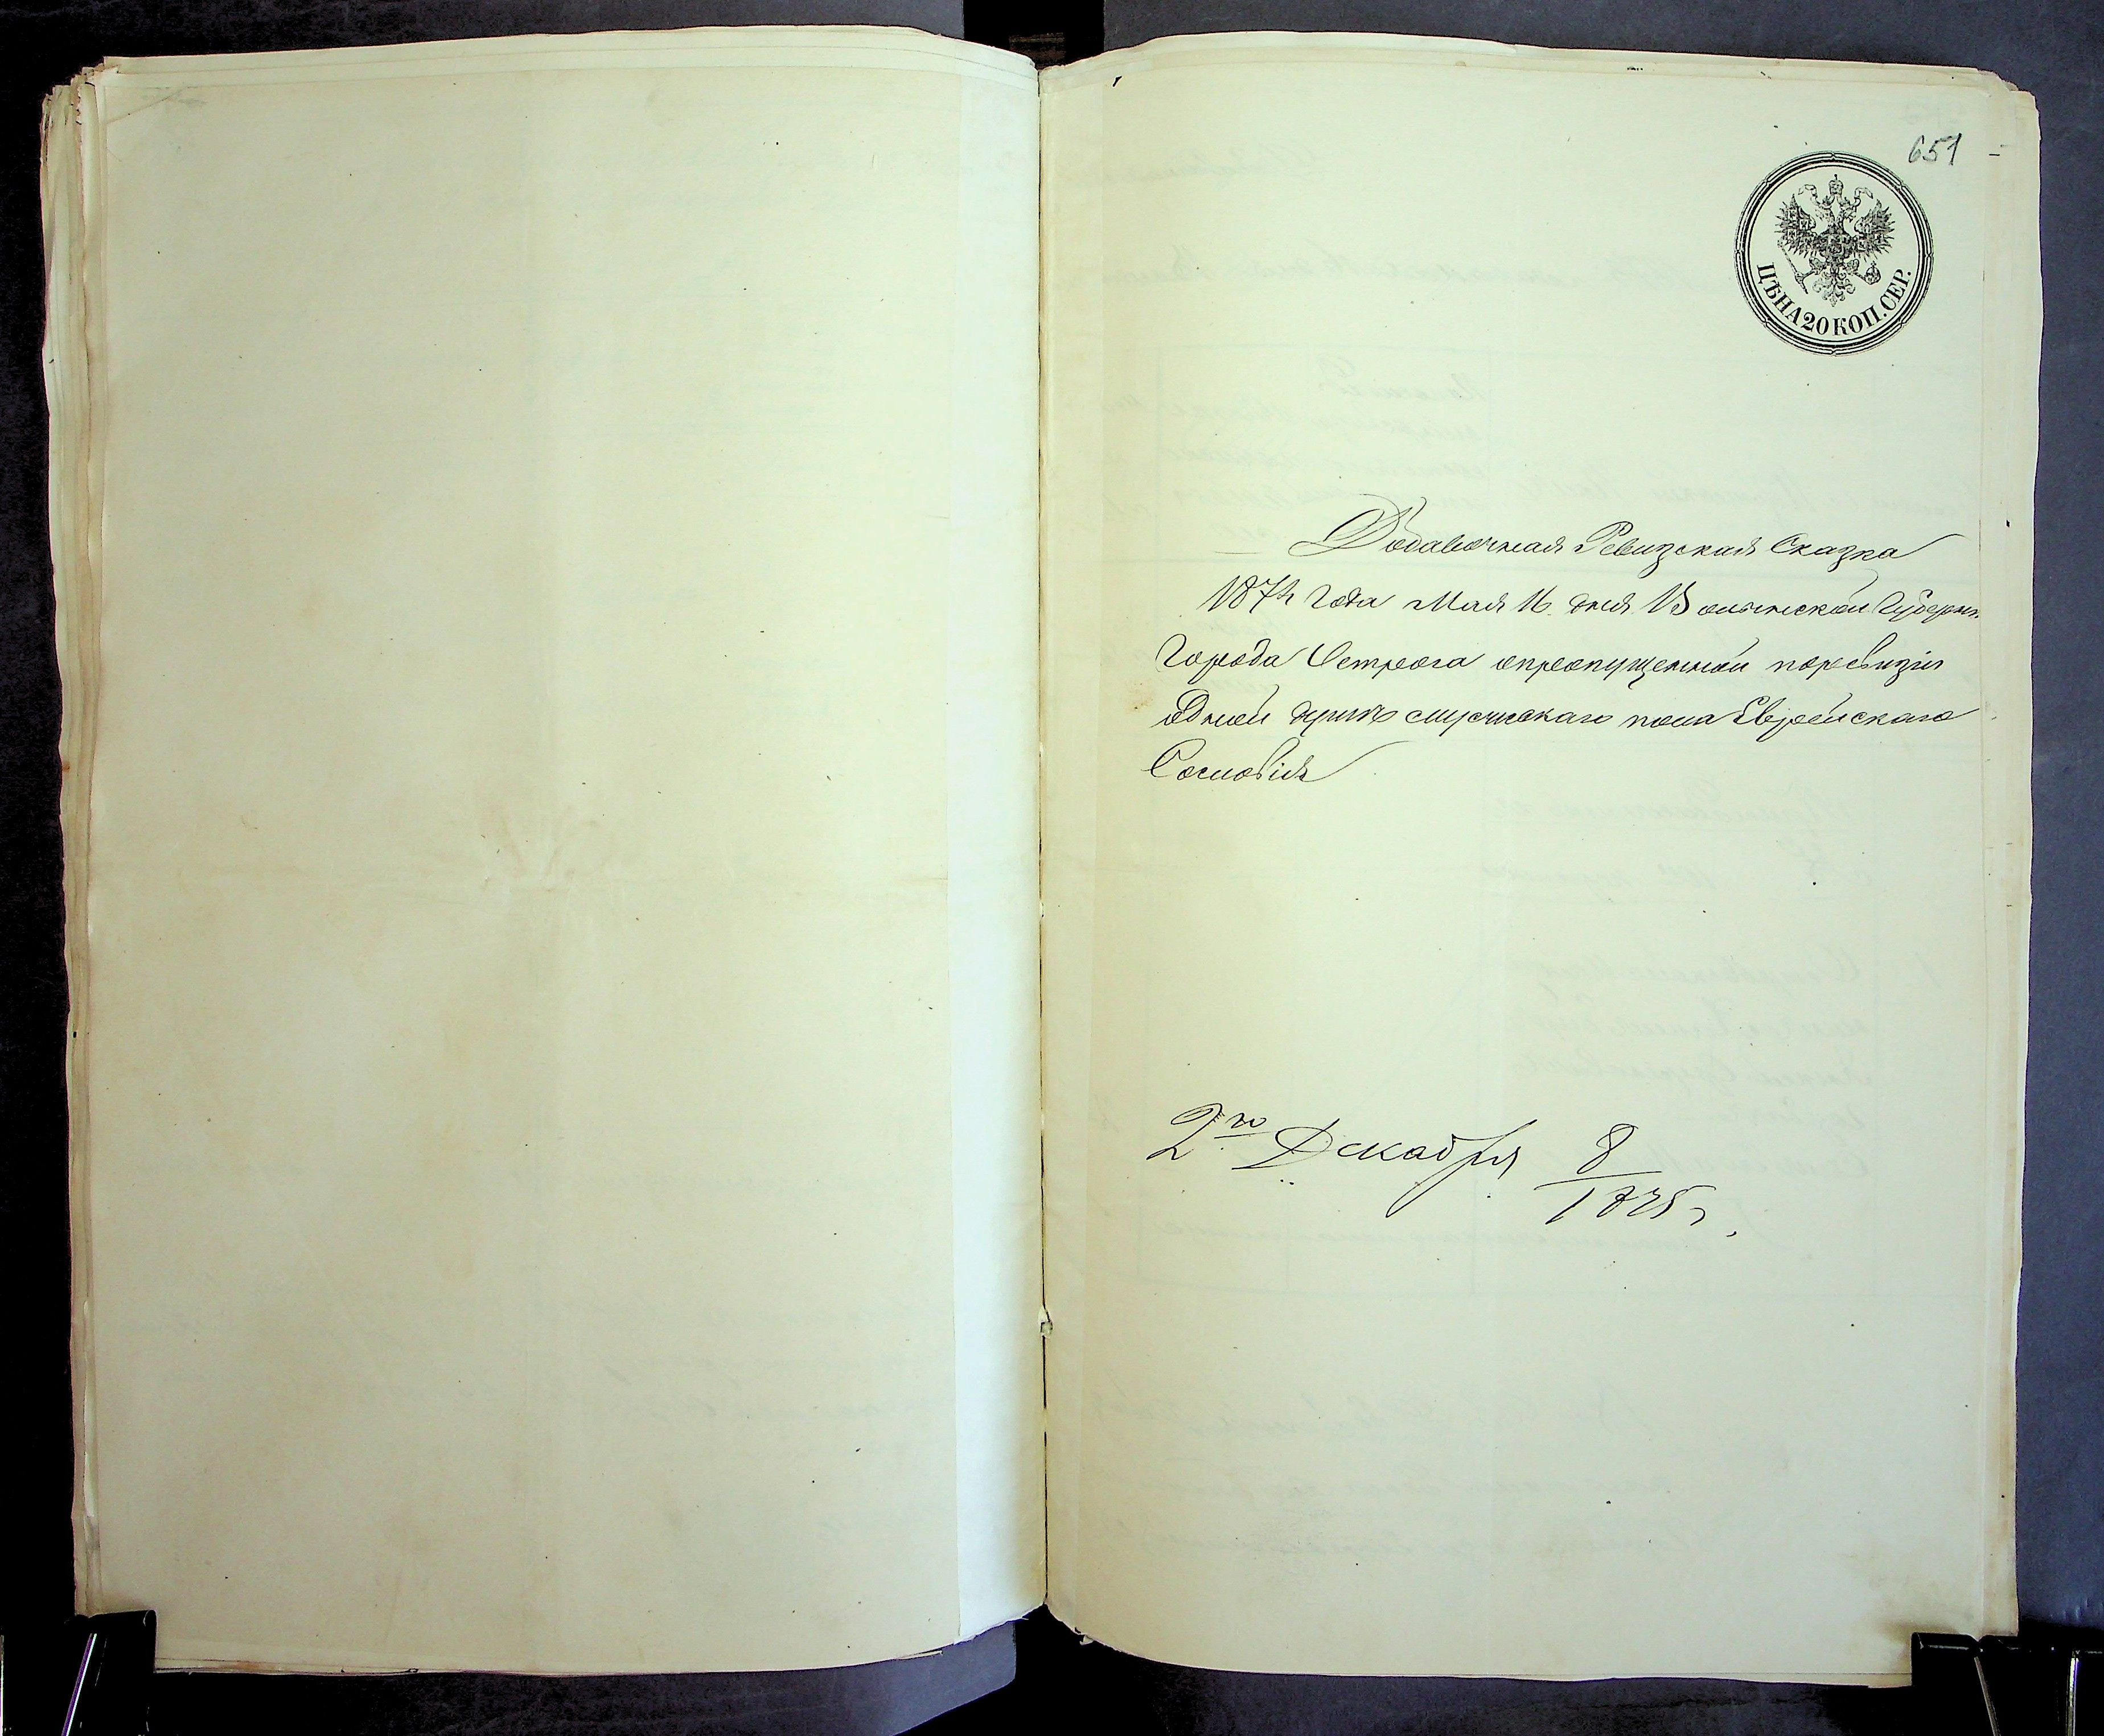 651
ЦѢНА 20 КОП. СЕР.
Добавочная Ревизская Сказка
1874 года Мая 16 дня Волынской Губерн.
Города Острога опропущенной поревизіи
одной душѣ мужескаго пола Еврейскаго
Сословія
2го Декабря 8
1875 г.